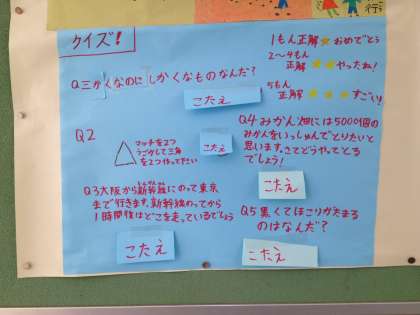 クイズ!
1もん正解★おめでとう
2~4もん
正解★★やったね!
5もん
正解★★★すごい!
Q三かくなのにしかくなものなんだ?
こたえ
Q2
マッチを2つ
うごかして三角
を2つやってたい
こたえ
Q4みかん畑には5000個の
みかんをいっしゅんでとりたいと
思います。さてどうやってとる
でしょう!
こたえ
Q3大阪から新幹線にのって東京
まで行きます。新幹線のってから
1時間後はどこを走っているでしょう
こたえ
Q5黒くてほこりがたまる
のはなんだ?
こたえ